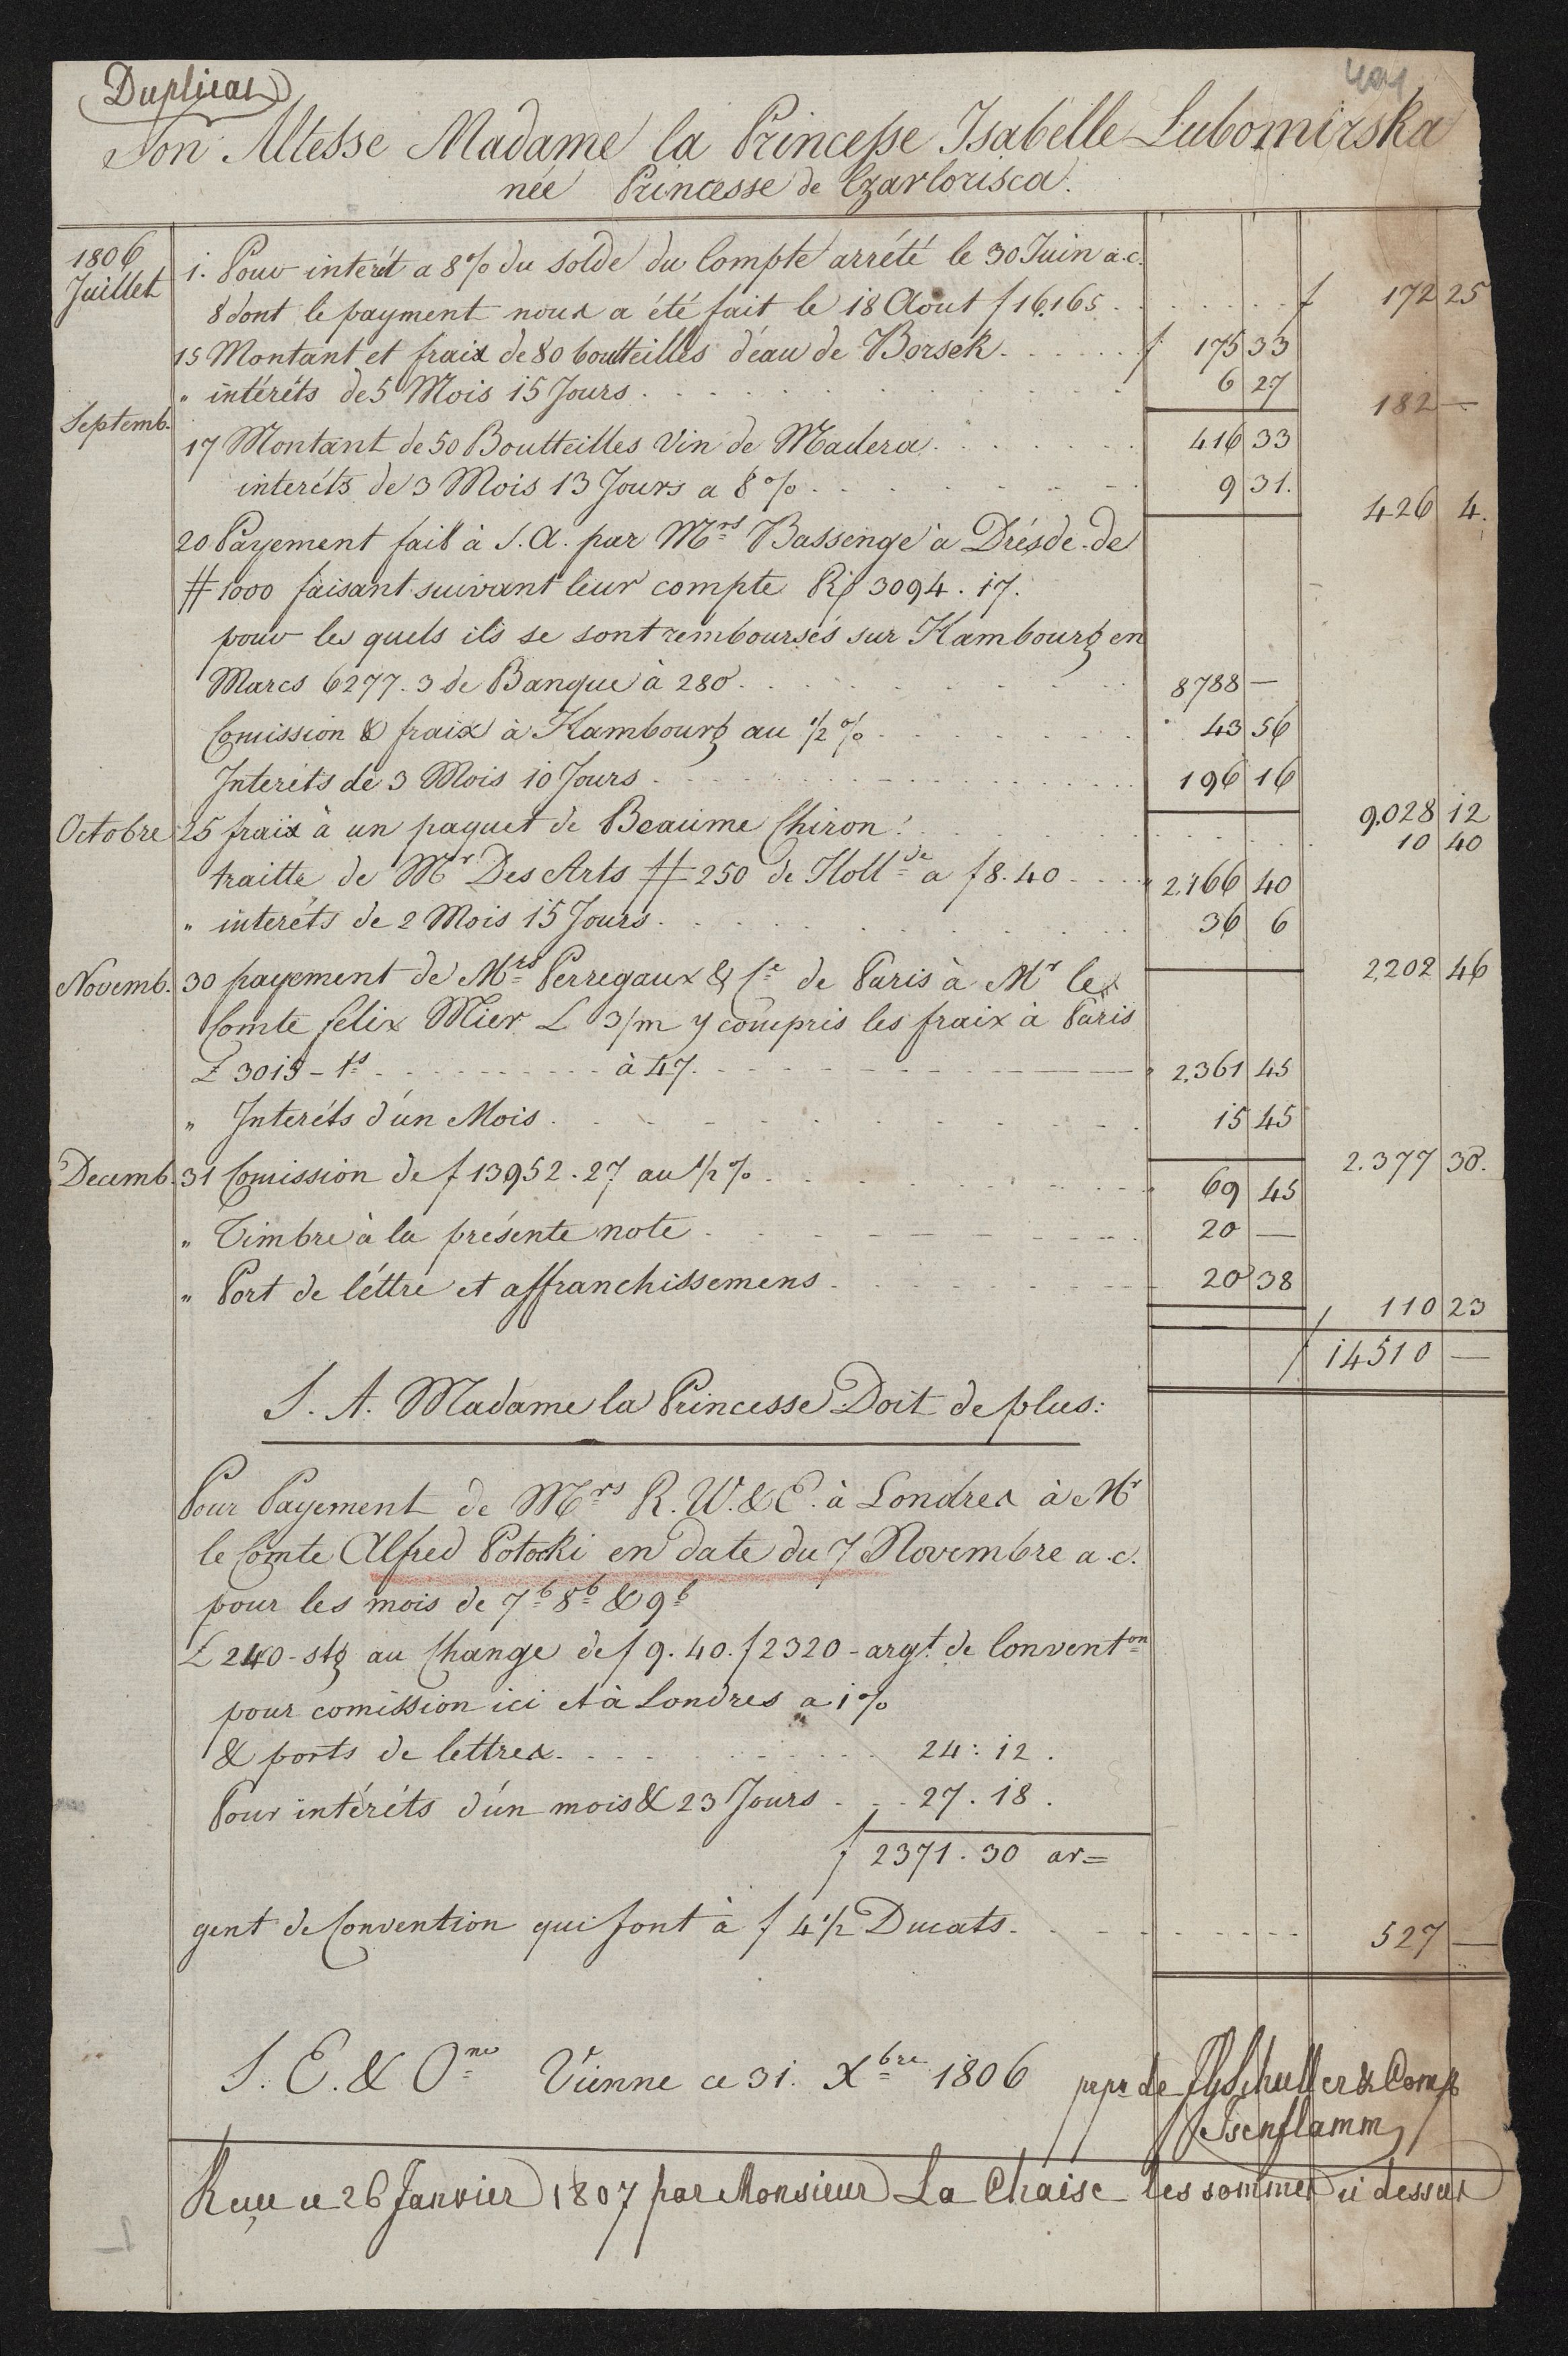 Duplicat
401
Son Altesse Madame la Princesse Isabelle Lubomirska
née Princesse de Czartorisca.
1806
Juillet 1. Pour interêt a 8% du solde du Compte arrété le 30 Juin a.c.
8 dont le payment nous a été fait le 18 Aout f 16.165 . . . f 172 25
15 Montant et fraix de 80 boutteilles d'éau de Borsek . . . f 175 33
" intéréts de 5 Mois 15 Jours . . . 6 27 182 —
Septemb. 17 Montant de 50 Boutteilles Vin de Madera . . . 416 33
interéts de 3 Mois 13 Jours a 8% . . . 9 31. 426 4.
20 Payement fait à S.A. par Mrs Bassenge à Drésde de
# 1000 faisant suivant leur compte Rf 3094 . 17.
pour les quels ils se sont remboursés sur Hambourg en
Marcs 6277. 3 de Banque à 280 . . . 8788 —
Comission & fraix à Hambourg au ½ % . . . 43 56
Interéts de 3 Mois 10 Jours . . . 196 16 9.028 12
Octobre 25 fraix à un paquet de Beaume Chiron . . . 10 40
traitte de Mr Des Arts # 250 de Hollde a f 8.40 . . . " 2,166 40
" interéts de 2 Mois 15 Jours . . . 36 6 2,202 46
Novemb. 30 payement de Mrs Perregaux & Ce de Paris à Mr le
Comte felix Mier L 3/m y compris les fraix à Paris
L 3015 – 1s . . . à 47. . . . " 2,361 45
" Interéts d'un Mois . . . 15 45 2.377 30.
Decemb. 31 Comission de f 13952 . 27 au ½ % . . . 69 45
" Timbre à la présente note . . . 20 —
" Port de léttre et affranchissemens . . . 20 38 f 110 23
f 14510 —
S. A. Madame la Princesse Doit de plus:
Pour Payement de Mrs R. W. & E. à Londres à Mr
le Comte Alfred Potocki en date du 7 Novembre a.c.
pour les mois de 7b 8b & 9b
L 240 - stg au Change de f 9. 40. f 2320 - argt. de Conventon
pour comission ici et à Londres a 1%
& ports de lettres . . . 24 : 12 .
Pour intéréts d'un mois & 23 Jours . . . 27 . 18 .
f 2371 . 30 ar=
gent de Convention qui font à f 4½ Ducats . . . 527 —
S. E. & One Vienne ce 31. Xbre 1806 pepr de JG Schuller & Comp
Isenflamm
Reçu ce 26 Janvier 1807 par Monsieur La Chaise les sommes ci dessus